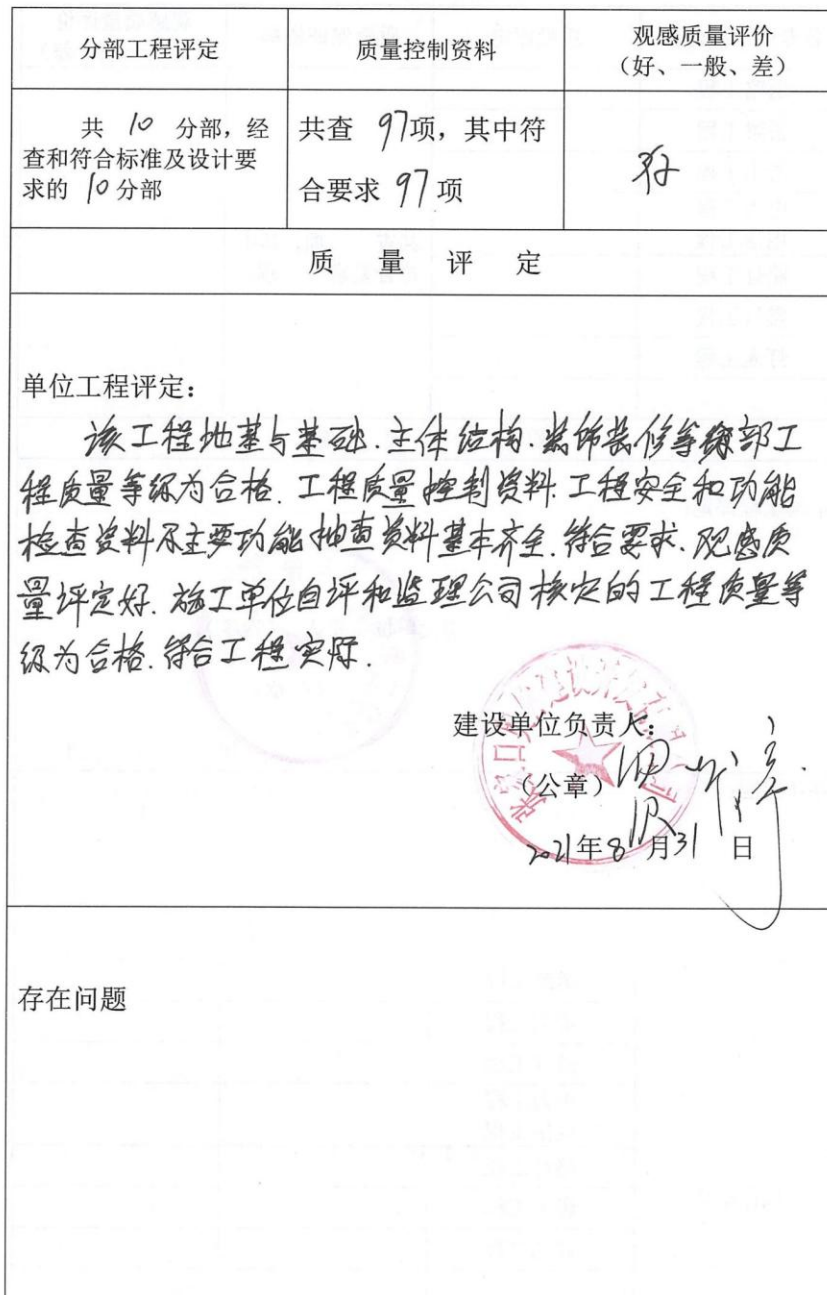 分部工程评定 质量控制资料 观感质量评价
（好、一般、差）
共 10 分部，经
查和符合标准及设计要
求的 10 分部
共查 97项，其中符
合要求 97 项
好
质 量 评 定
单位工程评定：
该工程地基与基础、主体结构、装饰装修等分部工
程质量等级为合格．工程质量控制资料、工程安全和功能
检查资料及主要功能抽查资料基本齐全、符合要求、观感质
量评定好．施工单位自评和监理公司核定的工程质量等
级为合格．符合工程实际．
建设单位负责人：
（公章）
2021年8月31日
存在问题